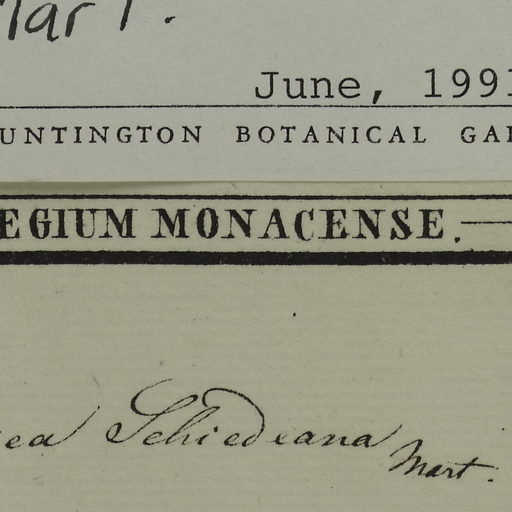 Mart.
June, 1991
UNTINGTON BOTANICAL GAR
EGIUM MONACENSE.
ea Schiedeana Mart.